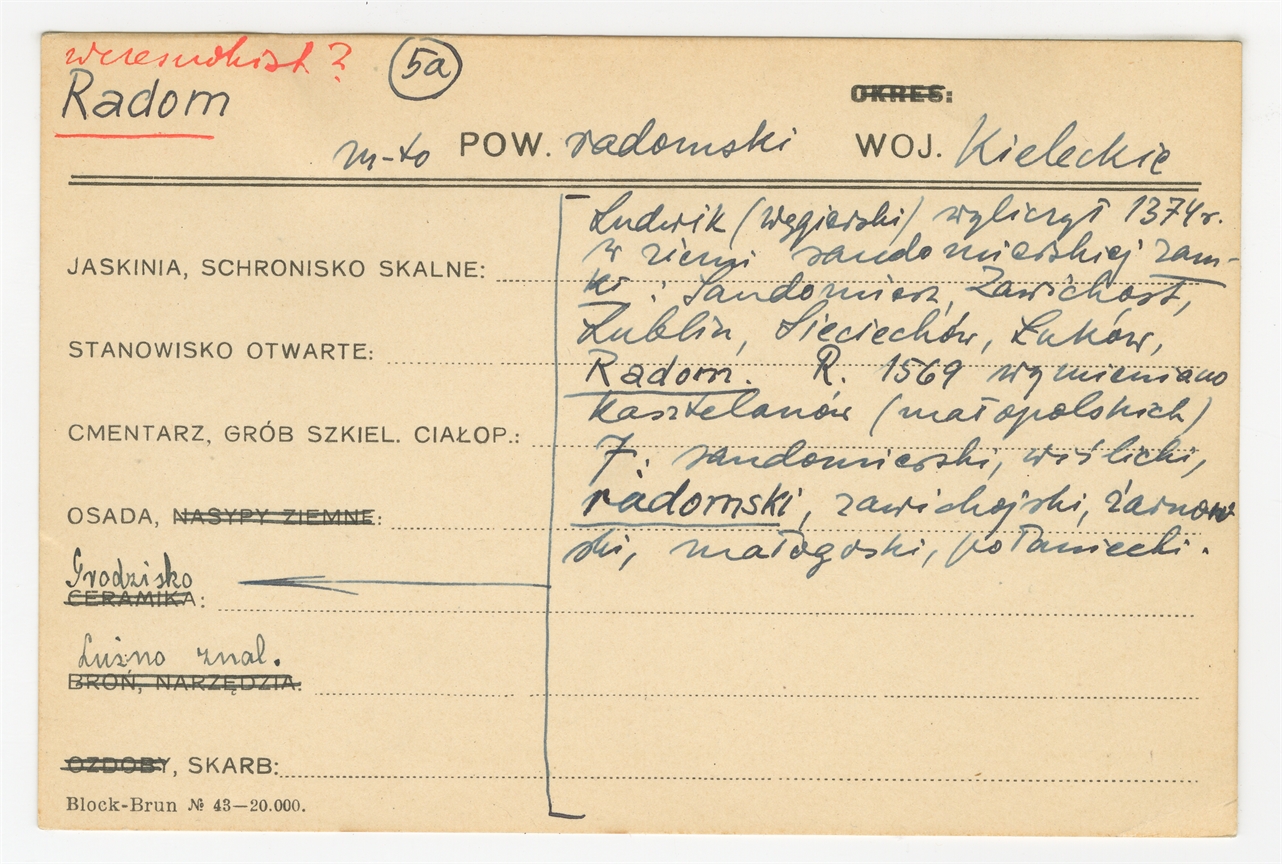 wczesnohist. ?
5a
Radom
OKRES:
m-to POW. radomski WOJ. Kieleckie
Ludwik (węgierski) wyliczył 1374 r.
w ziemi sandomierskiej zam-
ki: Sandomierz, Zawichost,
Lublin, Sieciechów, Łuków,
Radom. R. 1569 wymieniano
kasztelanów (małopolskich)
7: sandomierski, wiślicki,
radomski, zawichojski, żarnow
ski, małogoski, połaniecki.
JASKINIA, SCHRONISKO SKALNE:
STANOWISKO OTWARTE:
CMENTARZ, GRÓB SZKIEL. CIAŁOP.:
OSADA, NASYPY ZIEMNE:
Grodzisko
CERAMIKA:
Luźno znal.
BROŃ, NARZĘDZIA:
OZDOBY, SKARB:
Block-Brun № 43—20.000.